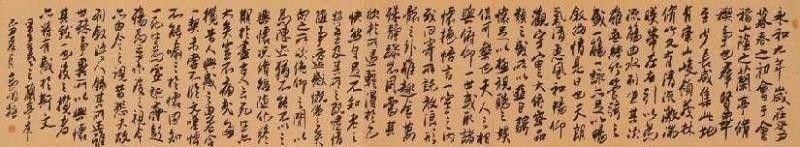 永和九年歲在癸丑
暮春之初會于會
稽山陰之蘭亭脩
禊事也群賢畢
至少長咸集此地
有崇山峻領茂林
脩竹又有清流激湍
暎帶左右引以為
流觴曲水列坐其次
雖無絲竹管弦之
盛一觴一詠亦足以暢
敘幽情是日也天朗
氣清惠風和暢仰
觀宇宙之大俯察品
類之盛所以遊目騁
懷足以極視聽之娛
信可樂也夫人之相
與俯仰一世或取諸
懷抱悟言一室之內
或因寄所託放浪形
骸之外雖趣舍萬
殊靜躁不同當其
欣於所遇暫得於己
快然自足不知老之
將至及其所之既惓情
隨事遷感慨係之矣
向之所欣俛仰之間以
為陳跡猶不能不以之
興懷況脩短隨化終
期於盡古人云死生亦
大矣豈不痛哉每
攬昔人興感之由若合
一契未嘗不臨文嗟悼
不能喻之於懷固知
一死生為虛誕齊彭
殤為妄作後之視今
亦由今之視昔悲夫故
列敘時人錄其所述雖
世殊事異所以興懷
其致一也後之攬者
亦將有感於斯文
王羲之蘭亭序